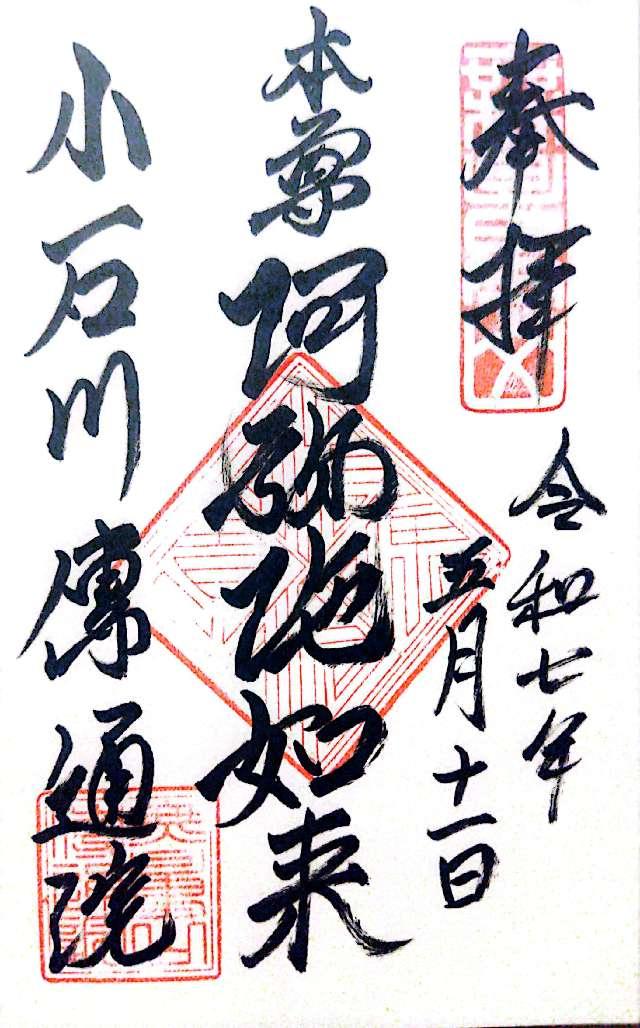 奉拝
令和七年
五月十一日
本尊 阿弥陀如来
小石川 傳通院